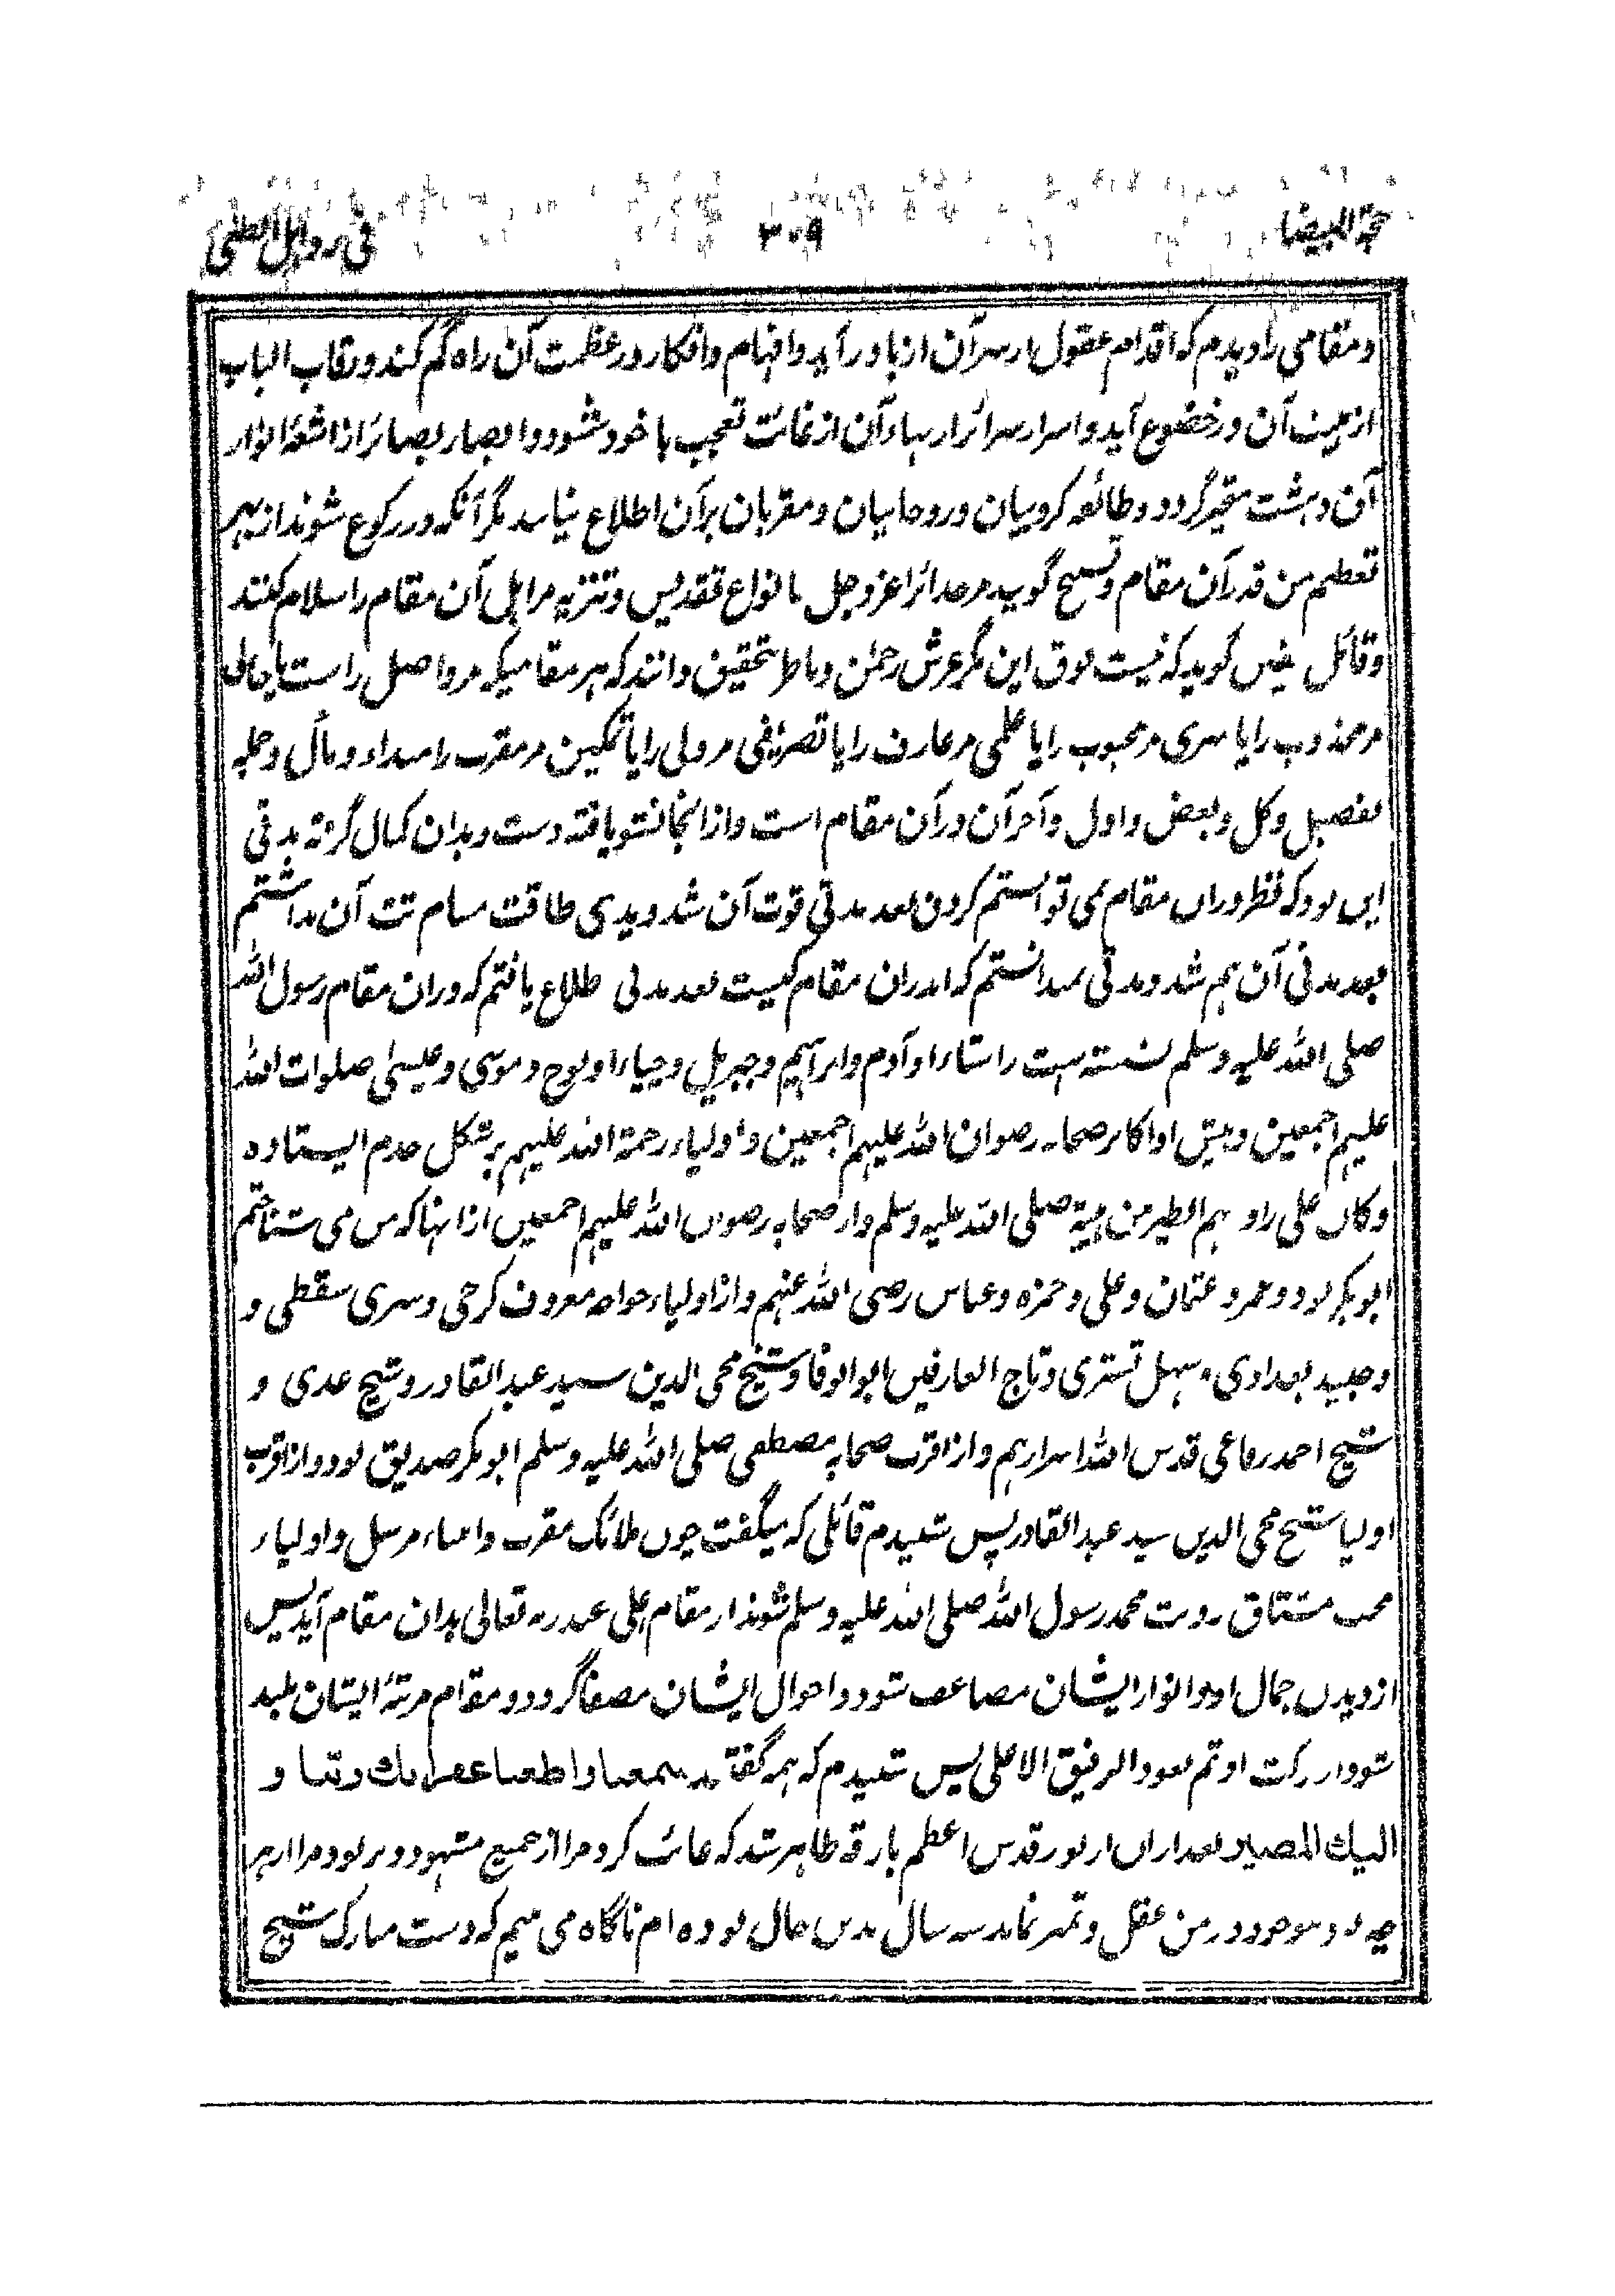 حجة البيضا ۳۰۹ فی رد اہل الطغی
و مقامی را دیدم که اقدام عقول از سر آن از پا در آید و افهام و افکار در عظمت آن راه گم کند و رقاب الباب
از هیبت آن در خضوع آید و اسرار سرائر از بهاء آن از غائت تعجب با خود شود و ابصار بصائر از اشعۀ انوار
آن دہشت متحیر گردد و طائفه کروبیان و روحانیان و مقربان بر آن اطلاع نیابند مگر آنکه در رکوع شوند از بهر
تعظیم من قدر آن مقام و تسبیح گویند مر خدائرا عز و جل با نواع تقدیس و تنزیه مر اہلی آن مقام را سلام کنند
و قائل گوید که نیست فوق این مگر عرش رحمٰن و ناظر تحقیق دانند که هر مقامیکه مر واصل راست یا حالی
مر مجذوب را یا سری مر محبوب را یا علمی مر عارف را یا تصریفی مر ولی را یا تمکین مر مقرب را مبداء و مآل و جمله
تفصیل و کل و بعض و اول و آخر آن در آن مقام است و از انجا نشو یافته دست و بدان کمال گرفته مدتی
این بود که نظر دران مقام نمی توانستم کردن بعد مدتی قوت آن شد و بدی طاقت آن نداشتم
بعد مدتی آن ہم شد و مدتی نمیدانستم که اندران مقام کیست بعد مدتی طلاع یافتم که دران مقام رسول الله
صلی الله علیه وسلم نشسته است راستاء او آدم و ابراہیم و جبریل و چپاء او نوح و موسی و عیسیٰ صلوات الله
علیہم اجمعین و پیش او اکابر صحابه رضوان الله علیہم اجمعین و اولیاء رحمة الله علیہم بر شکل خدم ایستاده
و کان علی راو ہم الطیر من ہیبة صلی الله علیه وسلم و از صحابه رضوان الله علیہم اجمعین از انہا که من می شناختم
ابو بکر بود و عمر و عثمان و علی و حمزه و عباس رضی الله عنہم و از اولیاء خواجه معروف کرخی و سری سقطی و
و جنید بغدادی و سہل تستری و تاج العارفین ابو الوفا و شیخ محی الدین سید عبد القادر و شیخ عدی و
شیخ احمد رفاعی قدس الله اسرارہم و از اقرب صحابه مصطفی صلی الله علیه وسلم ابو بکر صدیق بود و از اقرب
اولیا شیخ محی الدین سید عبد القادر پس شنیدم قائلی که میگفت چون ملائک مقرب و انبیاء مرسل و اولیاء
محب مشتاق رویت محمد رسول الله صلی الله علیه وسلم شوند از مقام اعلی عند ربه تعالی بدان مقام آید پس
از دیدن جمال او انوار ایشان مضاعف شود و احوال ایشان مصفا گردد و مقام مرتبۀ ایشان بلند
شود از برکت او ثم یعود الرفیق الاعلی پس شنیدم که ہمه گفتند سمعنا و اطعنا غفرانك ربنا و
الیك المصیر و بعد ازان از نور قدس اعظم بارقه ظاہر شد که غائب کرد مرا از جمیع مشہود و بربود مرا از ہر
چه بود موجود و در من عقل و تمیز نماند سه سال بدین حال بوده ام ناگاه می بینم که دست مبارک شیخ